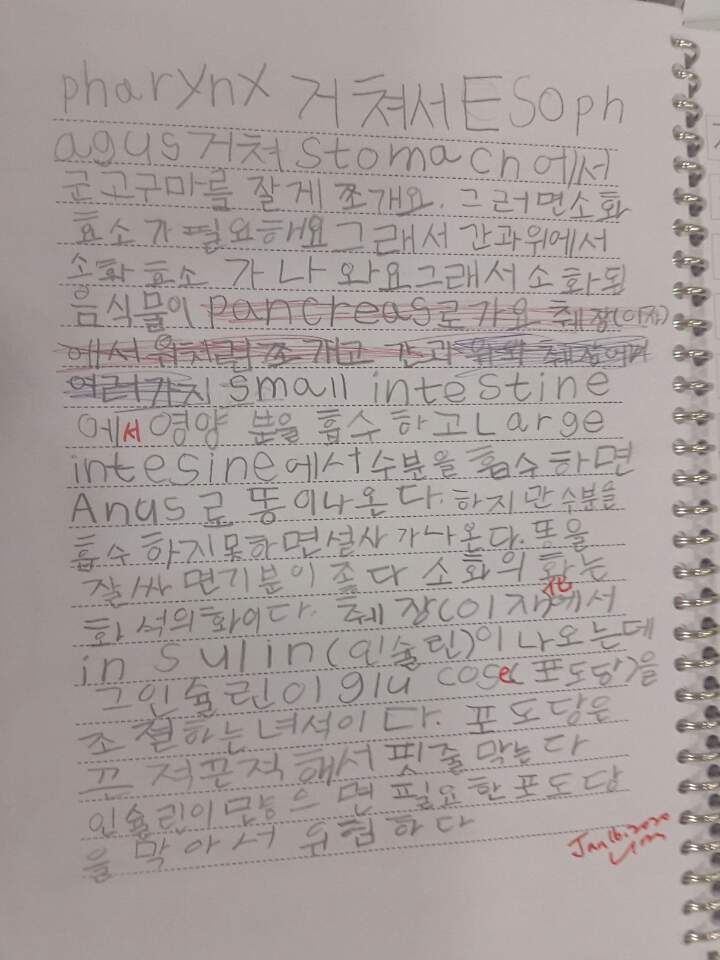 pharynx 거쳐서 ESoph
agus 거쳐 stomach에서
군고구마를 잘게 쪼개요. 그러면소화
효소가 필요해요 그래서 간과위에서
소화 효소 가 나 와요 그래서 소화됨
음식물이 pancreas로 가요 췌장(이자)
에서 위처럼 쪼개고 간과
여러가지 small intestine
에서 영양 분을 흡수 하고 Large
intesine에서 수분을 흡수하면
Anus로 똥이나온다. 하지만 수분을
흡수 하지못하면 설사 가나온다. 똥을
잘싸 면기분이 좋다 소화의 화는
化
화 석의 화이다. 췌 장(이자)에서
in sulin(인슐린)이 나오는데
그인슐린이 glu cose(포도당)을
조 절하는 녀석이 다. 포 도당은
끈 적끈적 해서 핏줄 막는다
인슐린이 많 으 면 필요한 포도당
을 막아서 위험하다
Jan 16. 2020